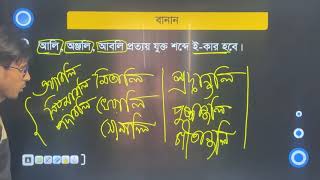 বানান
আলি, অঞ্জলি, আবলি প্রত্যয় যুক্ত শব্দে ই-কার হবে।
মিতালি শ্রদ্ধাঞ্জলি
নিয়মাবলি
পদাবলি পুষ্পাঞ্জলি
সোনালি গীতাঞ্জলি